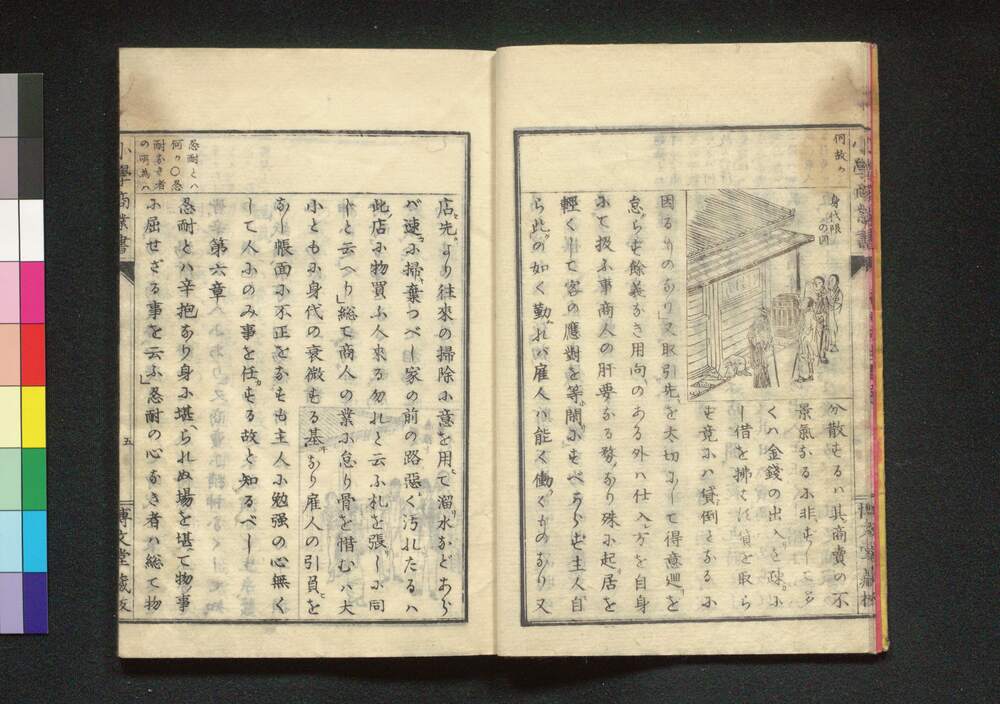 何故ゟ
身代限
の図
分散もるハ其商賣の不
景氣なるに非もして多
くハ金錢の出入を疎かに
し借を拂はば貸を取ら
も竟にハ貸倒となるに
因るものなり又取引先を大切にして得意廻を
怠らも餘義なき用向のある外ハ仕入方を自身
にて扱ふ事商人の肝要なる務なり殊に起居を
輕くして客の應對を等閑にもべからも主人自
ら此の如く勤れバ雇人ハ能く働くものなり又
店先より往來の掃除に意を用て溜水などあら
バ速に掃棄つべし家の前の路惡く汚れたるハ
此店に物買ふ人來る勿れと云ふ札を張しに同
しと云へり」総て商人の業に怠り骨を惜むハ大
小ともに身代の衰微もる基なり雇人の引負を
なし帳面に不正をなもも主人に勉强の心無く
して人にのみ事を任もる故と知るべし
第六章
忍耐とハ辛抱なり身に堪られぬ場を堪て物事
に屈せざる事を云ふ」忍耐の心なき者ハ総て物
忍耐とハ
何ゟ〇忍
耐なき者
の所為ハ
小學商業書
五
博文堂藏板